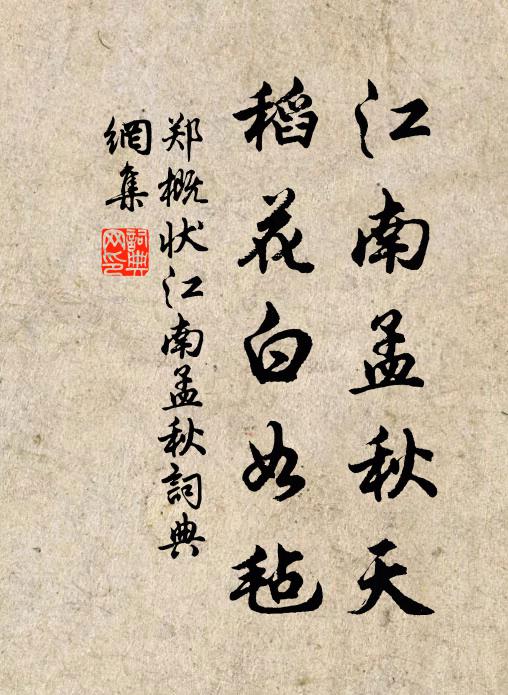 江南孟秋天
稻花白如毡
郑概状江南孟秋詞典
網集
詞典
网印